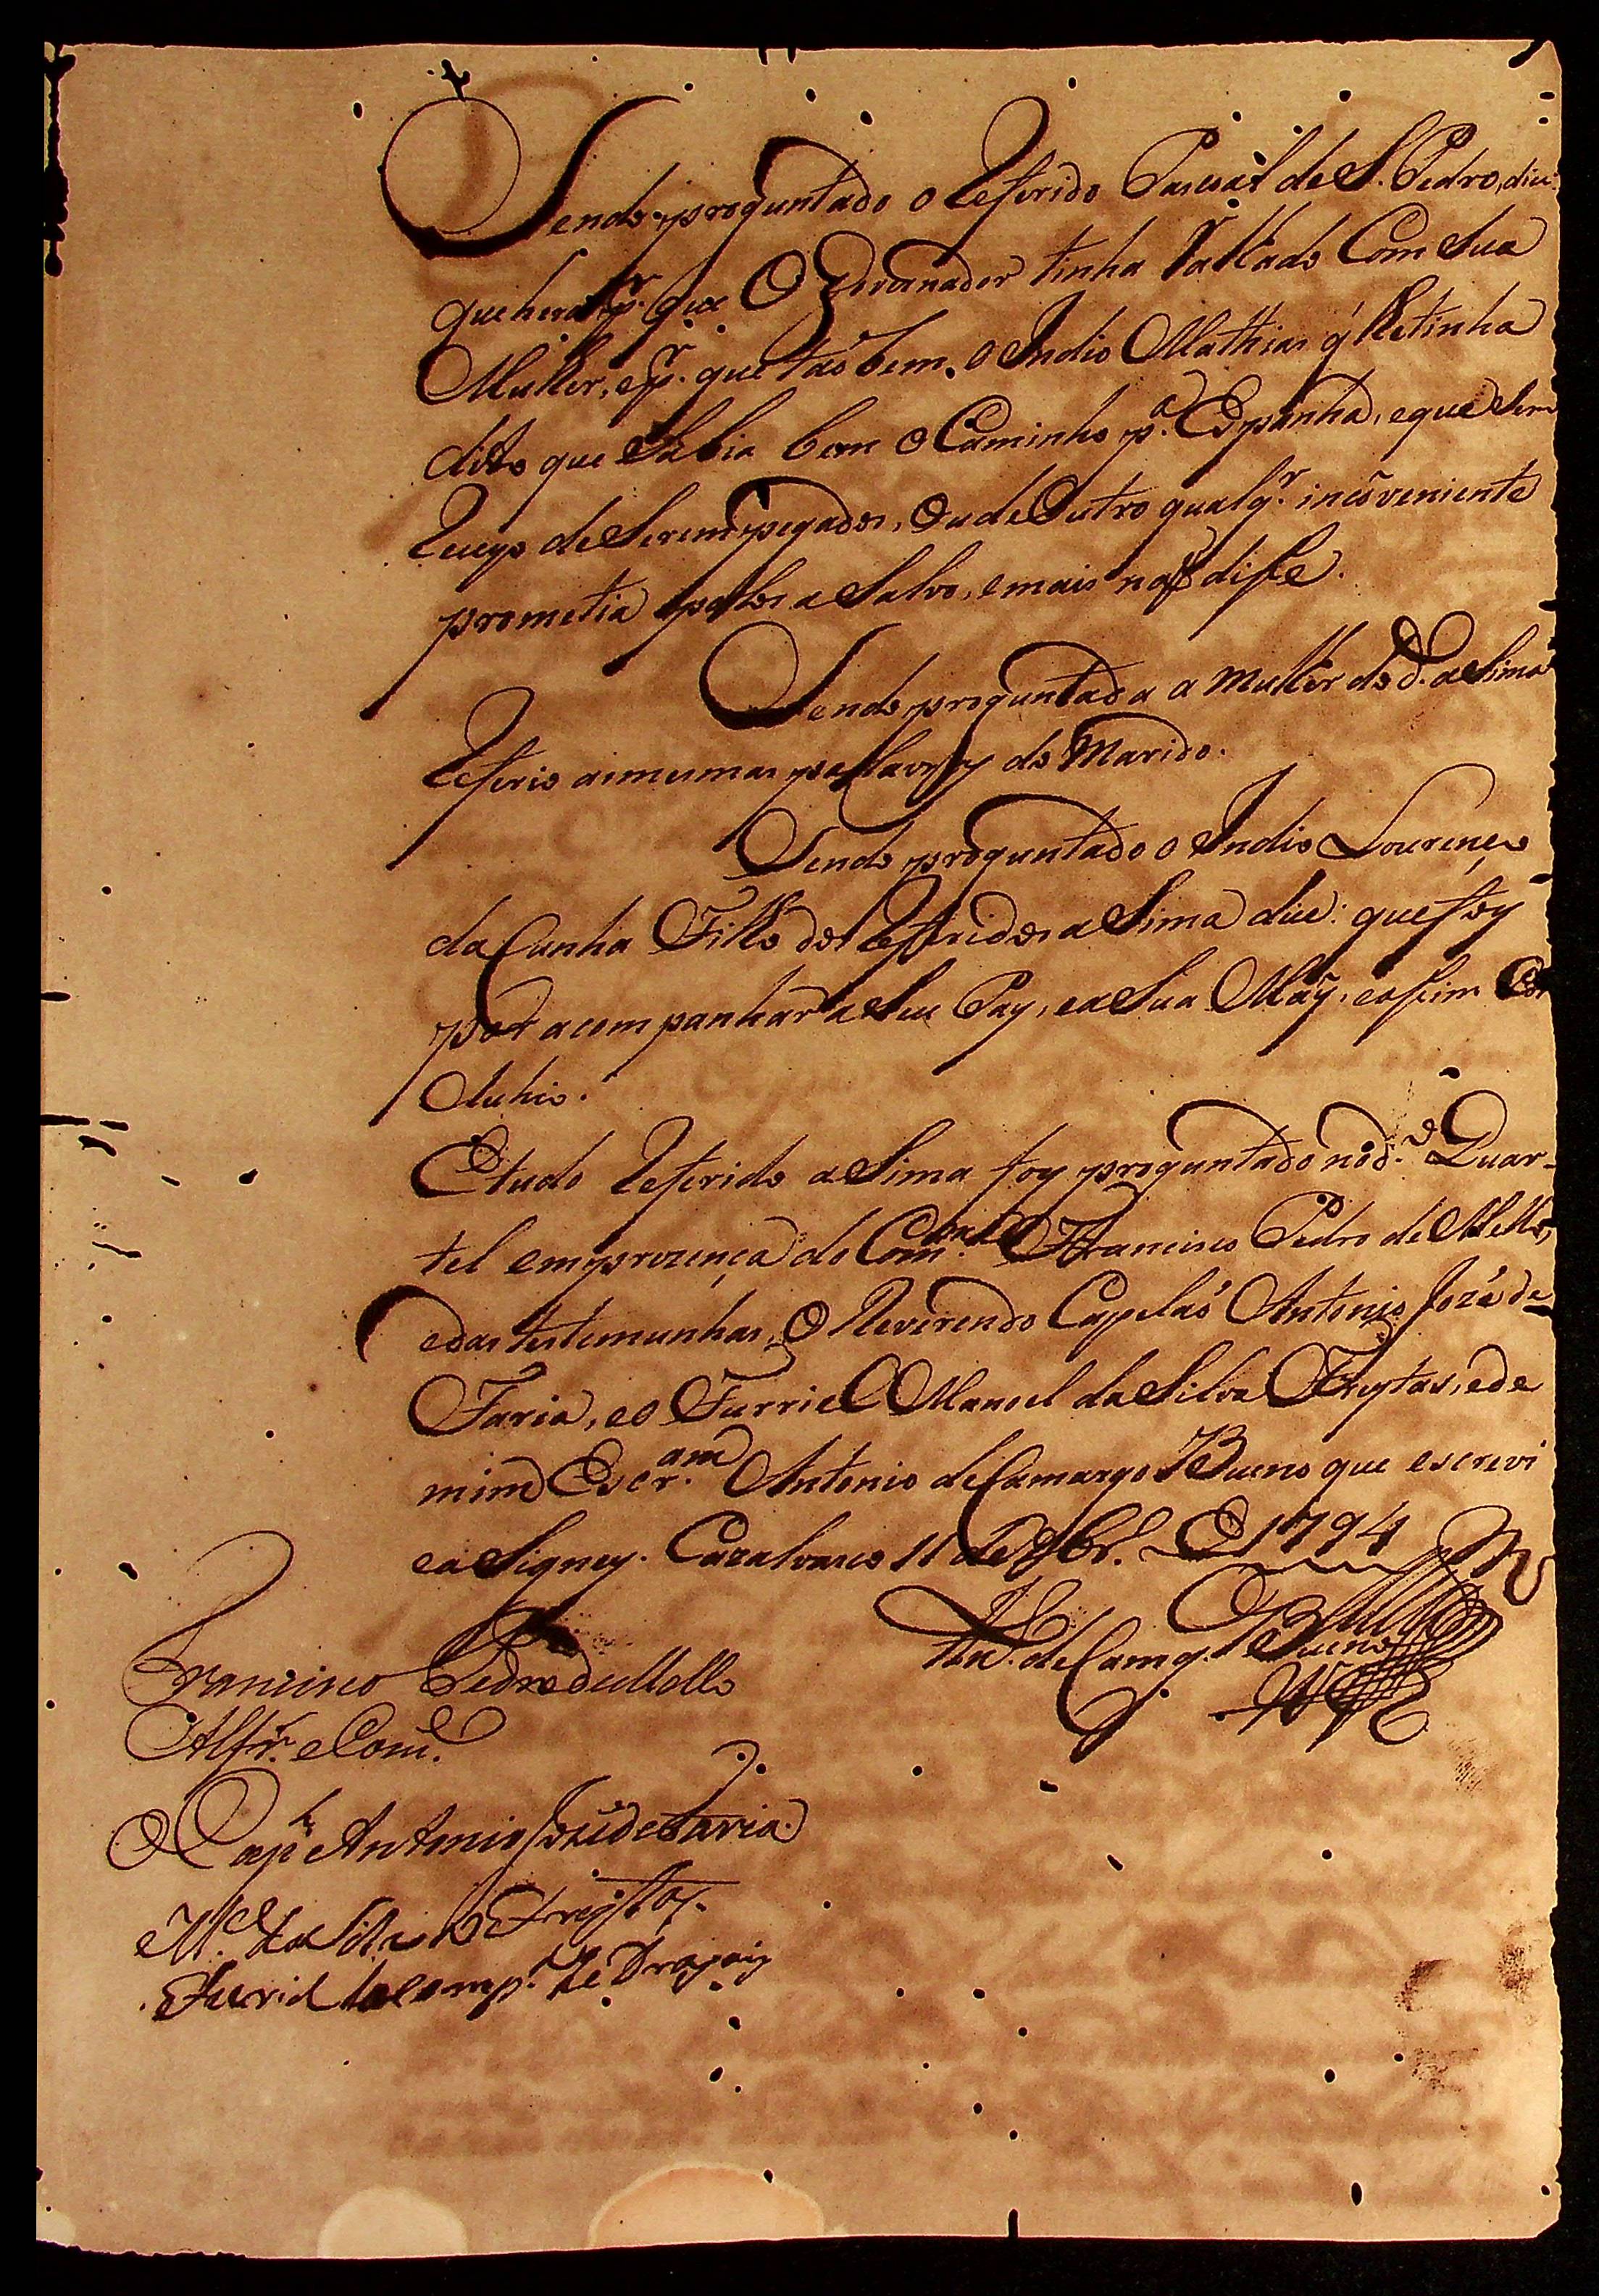 Sendo proguntado o Referido Pascoal de S. Pedro, dice:
que hera p.r que O Governador tinha Faltado Com Sua
Mulher, e p.r que taõ bem, o Indio Mathias q̃ lhe tinha
dito que Sabia bem o Caminho p.a Espanha, e que Sem
Receyo de Serem pegados, Ou de Outro qualq.r incõveniente
prometia polos a Salvo, e mais naõ disse.
Sendo proguntada a Mulher do d.o a Sima
Referio as mesmas pallavras do Marido.
Sendo proguntado o Indio Lourenço
da Cunha Filho dos Referidos a Sima dice: que foy
por acompanhar a Seu Pay, e a Sua Mãy, e assim Con
cluhio.
E tudo Referido a Sima foy proguntado no d.o Quar-
tel em prezença do Com.te Francisco Pedro de Mello,
e das testemunhas, O Reverendo Capelaõ Antonio Jozé de
Faria, e o Furriel Manoel da Silva Freytas, e de
mim Escr.am Antonio de Camargo Bueno que escrevi
e a Signey. Cazalvasco 11 de 9br.o D 1794
An.to de Camg.o Bueno
Francisco Pedro de Mello
Alf.r e Com.e
O Cap.m Antonio Jozé de Faria
M.el da Silva Freytas
Furriel da Comp.a de Dragoiz